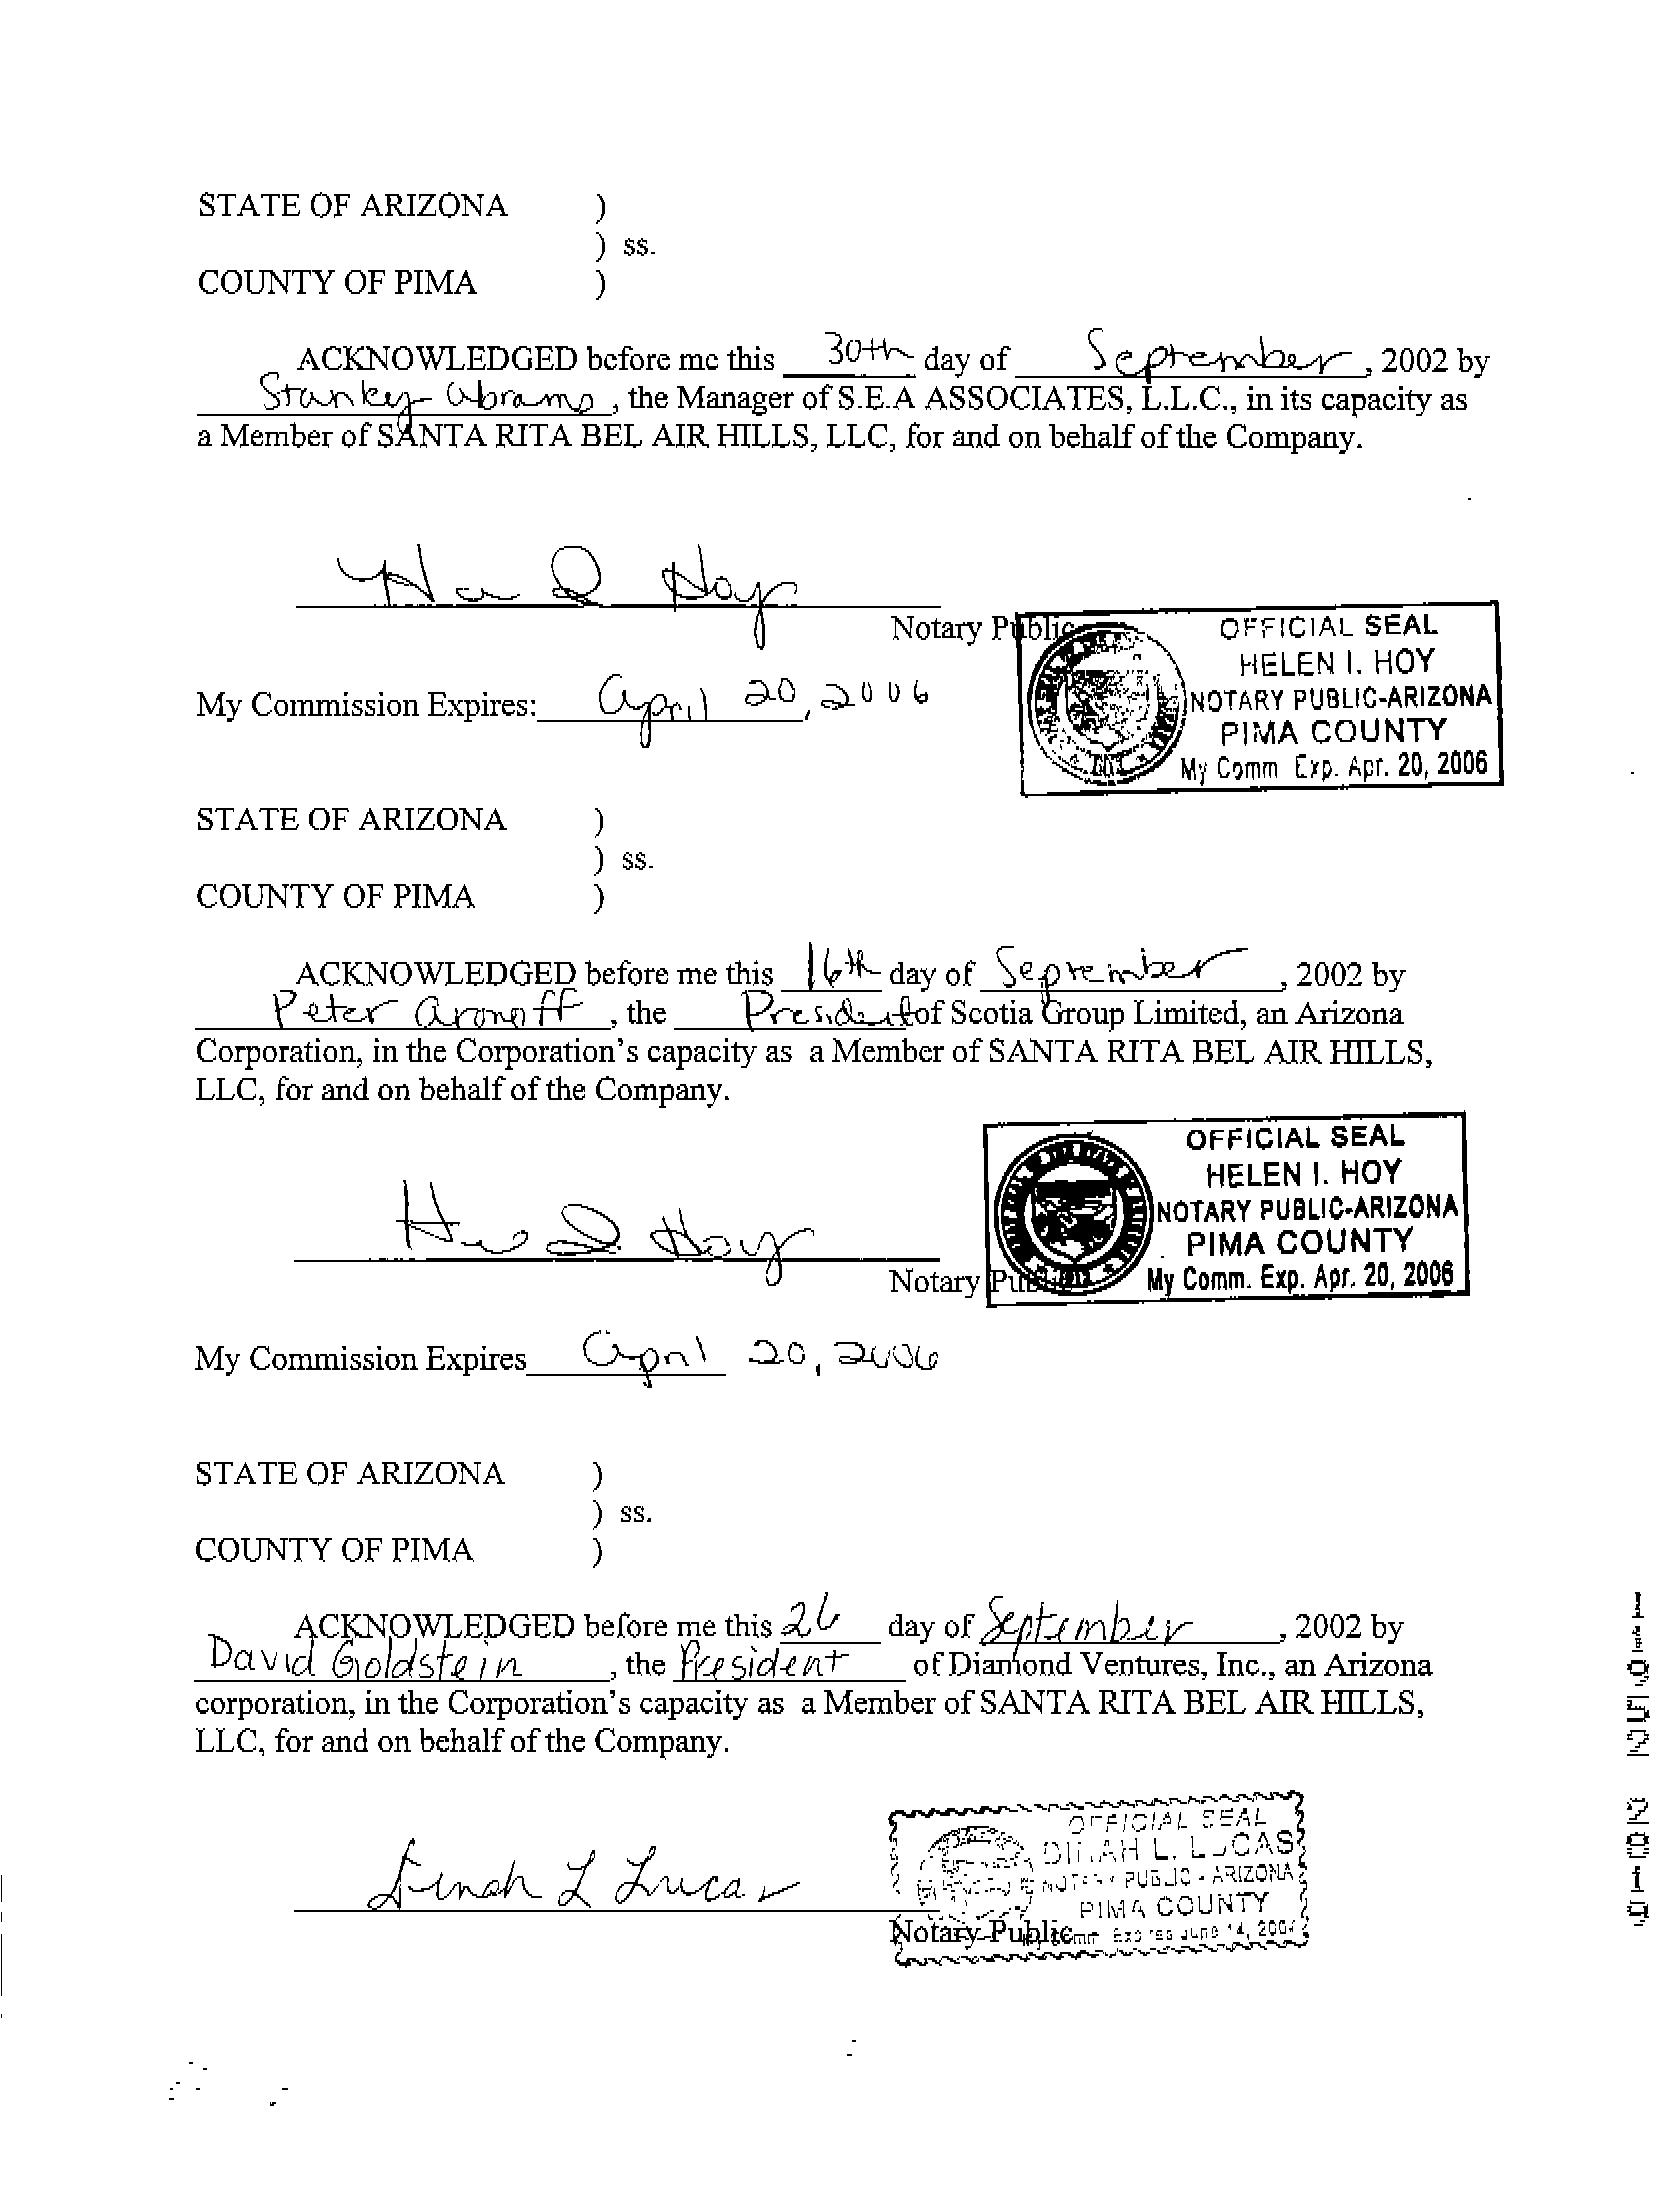 STATE OF ARIZONA )
) ss.
COUNTY OF PIMA )
ACKNOWLEDGED before me this 30th day of September, 2002 by
Stanley Abrams, the Manager of S.E.A ASSOCIATES, L.L.C., in its capacity as
a Member of SANTA RITA BEL AIR HILLS, LLC, for and on behalf of the Company.
Hoy
Notary Public
OFFICIAL SEAL
HELEN I. HOY
NOTARY PUBLIC-ARIZONA
PIMA COUNTY
My Comm Exp. Apr. 20, 2006
My Commission Expires: April 20, 2006
STATE OF ARIZONA )
) ss.
COUNTY OF PIMA )
ACKNOWLEDGED before me this 16th day of September, 2002 by
Peter Aronoff, the President of Scotia Group Limited, an Arizona
Corporation, in the Corporation's capacity as a Member of SANTA RITA BEL AIR HILLS,
LLC, for and on behalf of the Company.
OFFICIAL SEAL
HELEN I. HOY
NOTARY PUBLIC-ARIZONA
PIMA COUNTY
My Comm. Exp. Apr. 20, 2006
Hoy
Notary Public
My Commission Expires April 20, 2006
STATE OF ARIZONA )
) ss.
COUNTY OF PIMA )
ACKNOWLEDGED before me this 26 day of September, 2002 by
David Goldstein, the President of Diamond Ventures, Inc., an Arizona
corporation, in the Corporation's capacity as a Member of SANTA RITA BEL AIR HILLS,
LLC, for and on behalf of the Company.
OFFICIAL SEAL
DINAH L. LUCAS
NOTARY PUBLIC - ARIZONA
PIMA COUNTY
Comm Expires June 14,
Dinah L Lucas
Notary Public